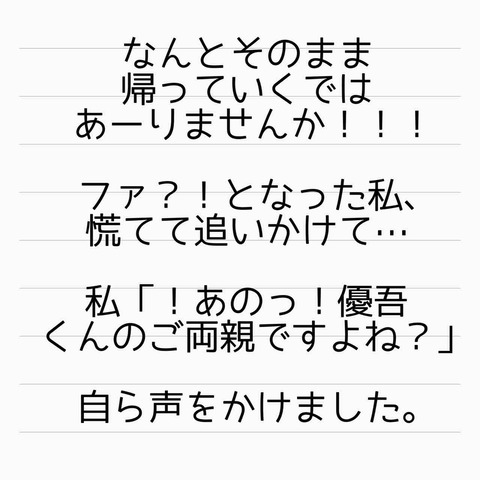 なんとそのまま
帰っていくでは
あーりませんか！！！
ファ？！となった私、
慌てて追いかけて…
私「！あのっ！優吾
くんのご両親ですよね？」
自ら声をかけました。